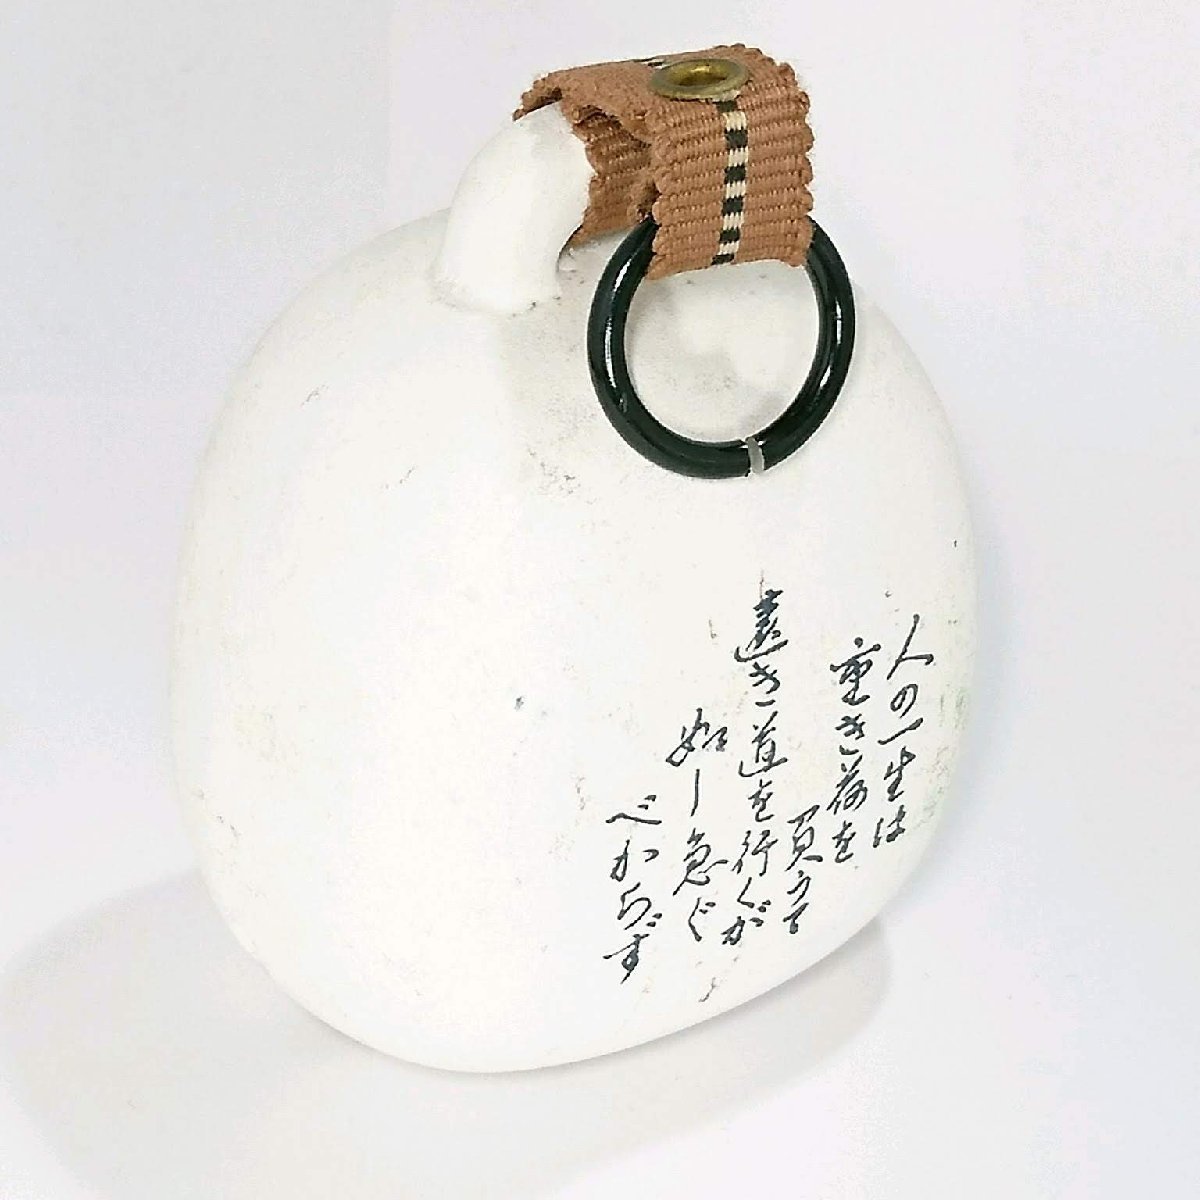 人の一生は
重き荷を
買うて
遠き道を行くが
如し急ぐ
べからず